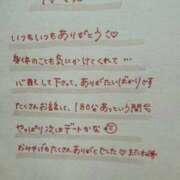 いつもいつもありがとう♡
身体のことも気にかけてくれて…
心配して下さって、ありがたいばかりです
たくさんお話して、180分あっという間
やっぱり次はデートかな
おみやげもたくさんありがとでした♡また